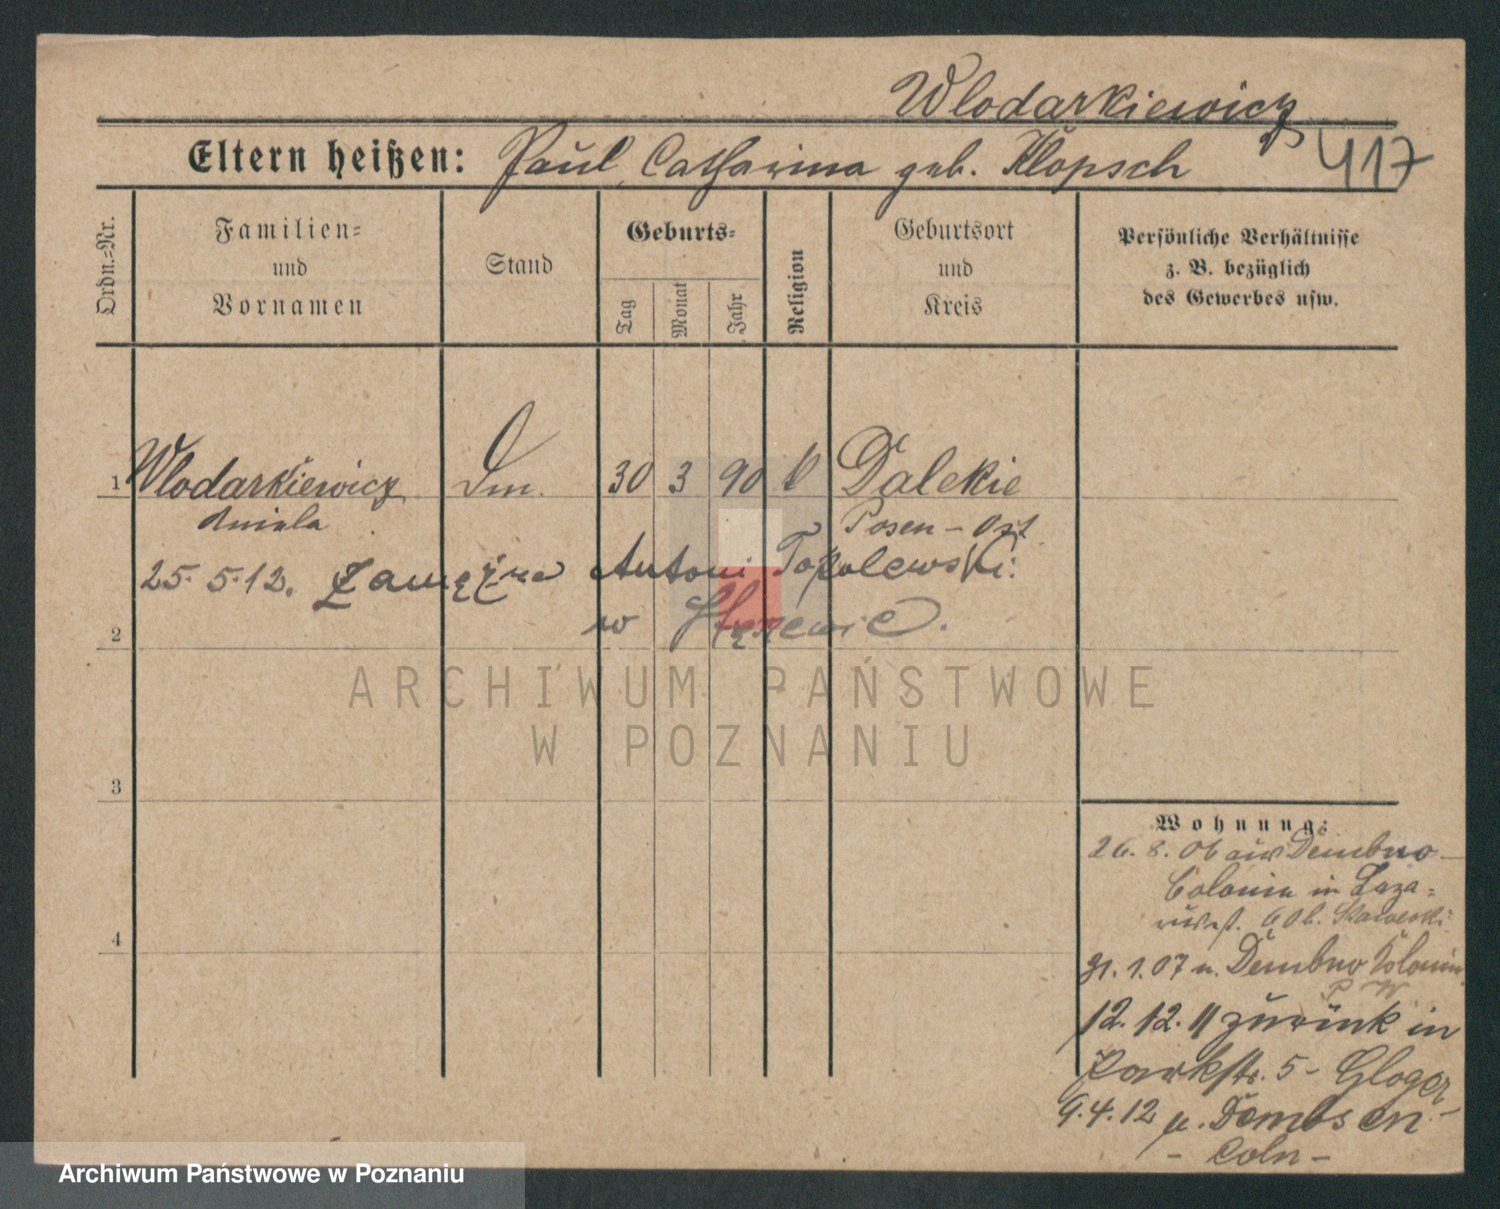 Wlodarkiewicz
Eltern heißen: Paul, Catharina geb. Klopsch 417
Ordn.-Nr.
Familien-
und
Vornamen
Stand
Geburts-
Tag
Monat
Jahr
Religion
Geburtsort
und
Kreis
Persönliche Verhältnisse
z. B. bezüglich
des Gewerbes usw.
1 Wlodarkiewicz Dm. 30 3 90 k Dalekie
Aniela Posen-Ost
25.5.12. Zamężna Antoni Topolewski
w
2
ARCHIWUM PAŃSTWOWE
W POZNANIU
3
Wohnung:
26. 8. 06 aus Dembno
Colonie in Laza-
4
31.1.07 n. Dembno Kolonie
12.12.11 zurück in
Parkstr. 5 - Gloger
9.4.12 n. Dembsen
- Coln -
Archiwum Państwowe w Poznaniu